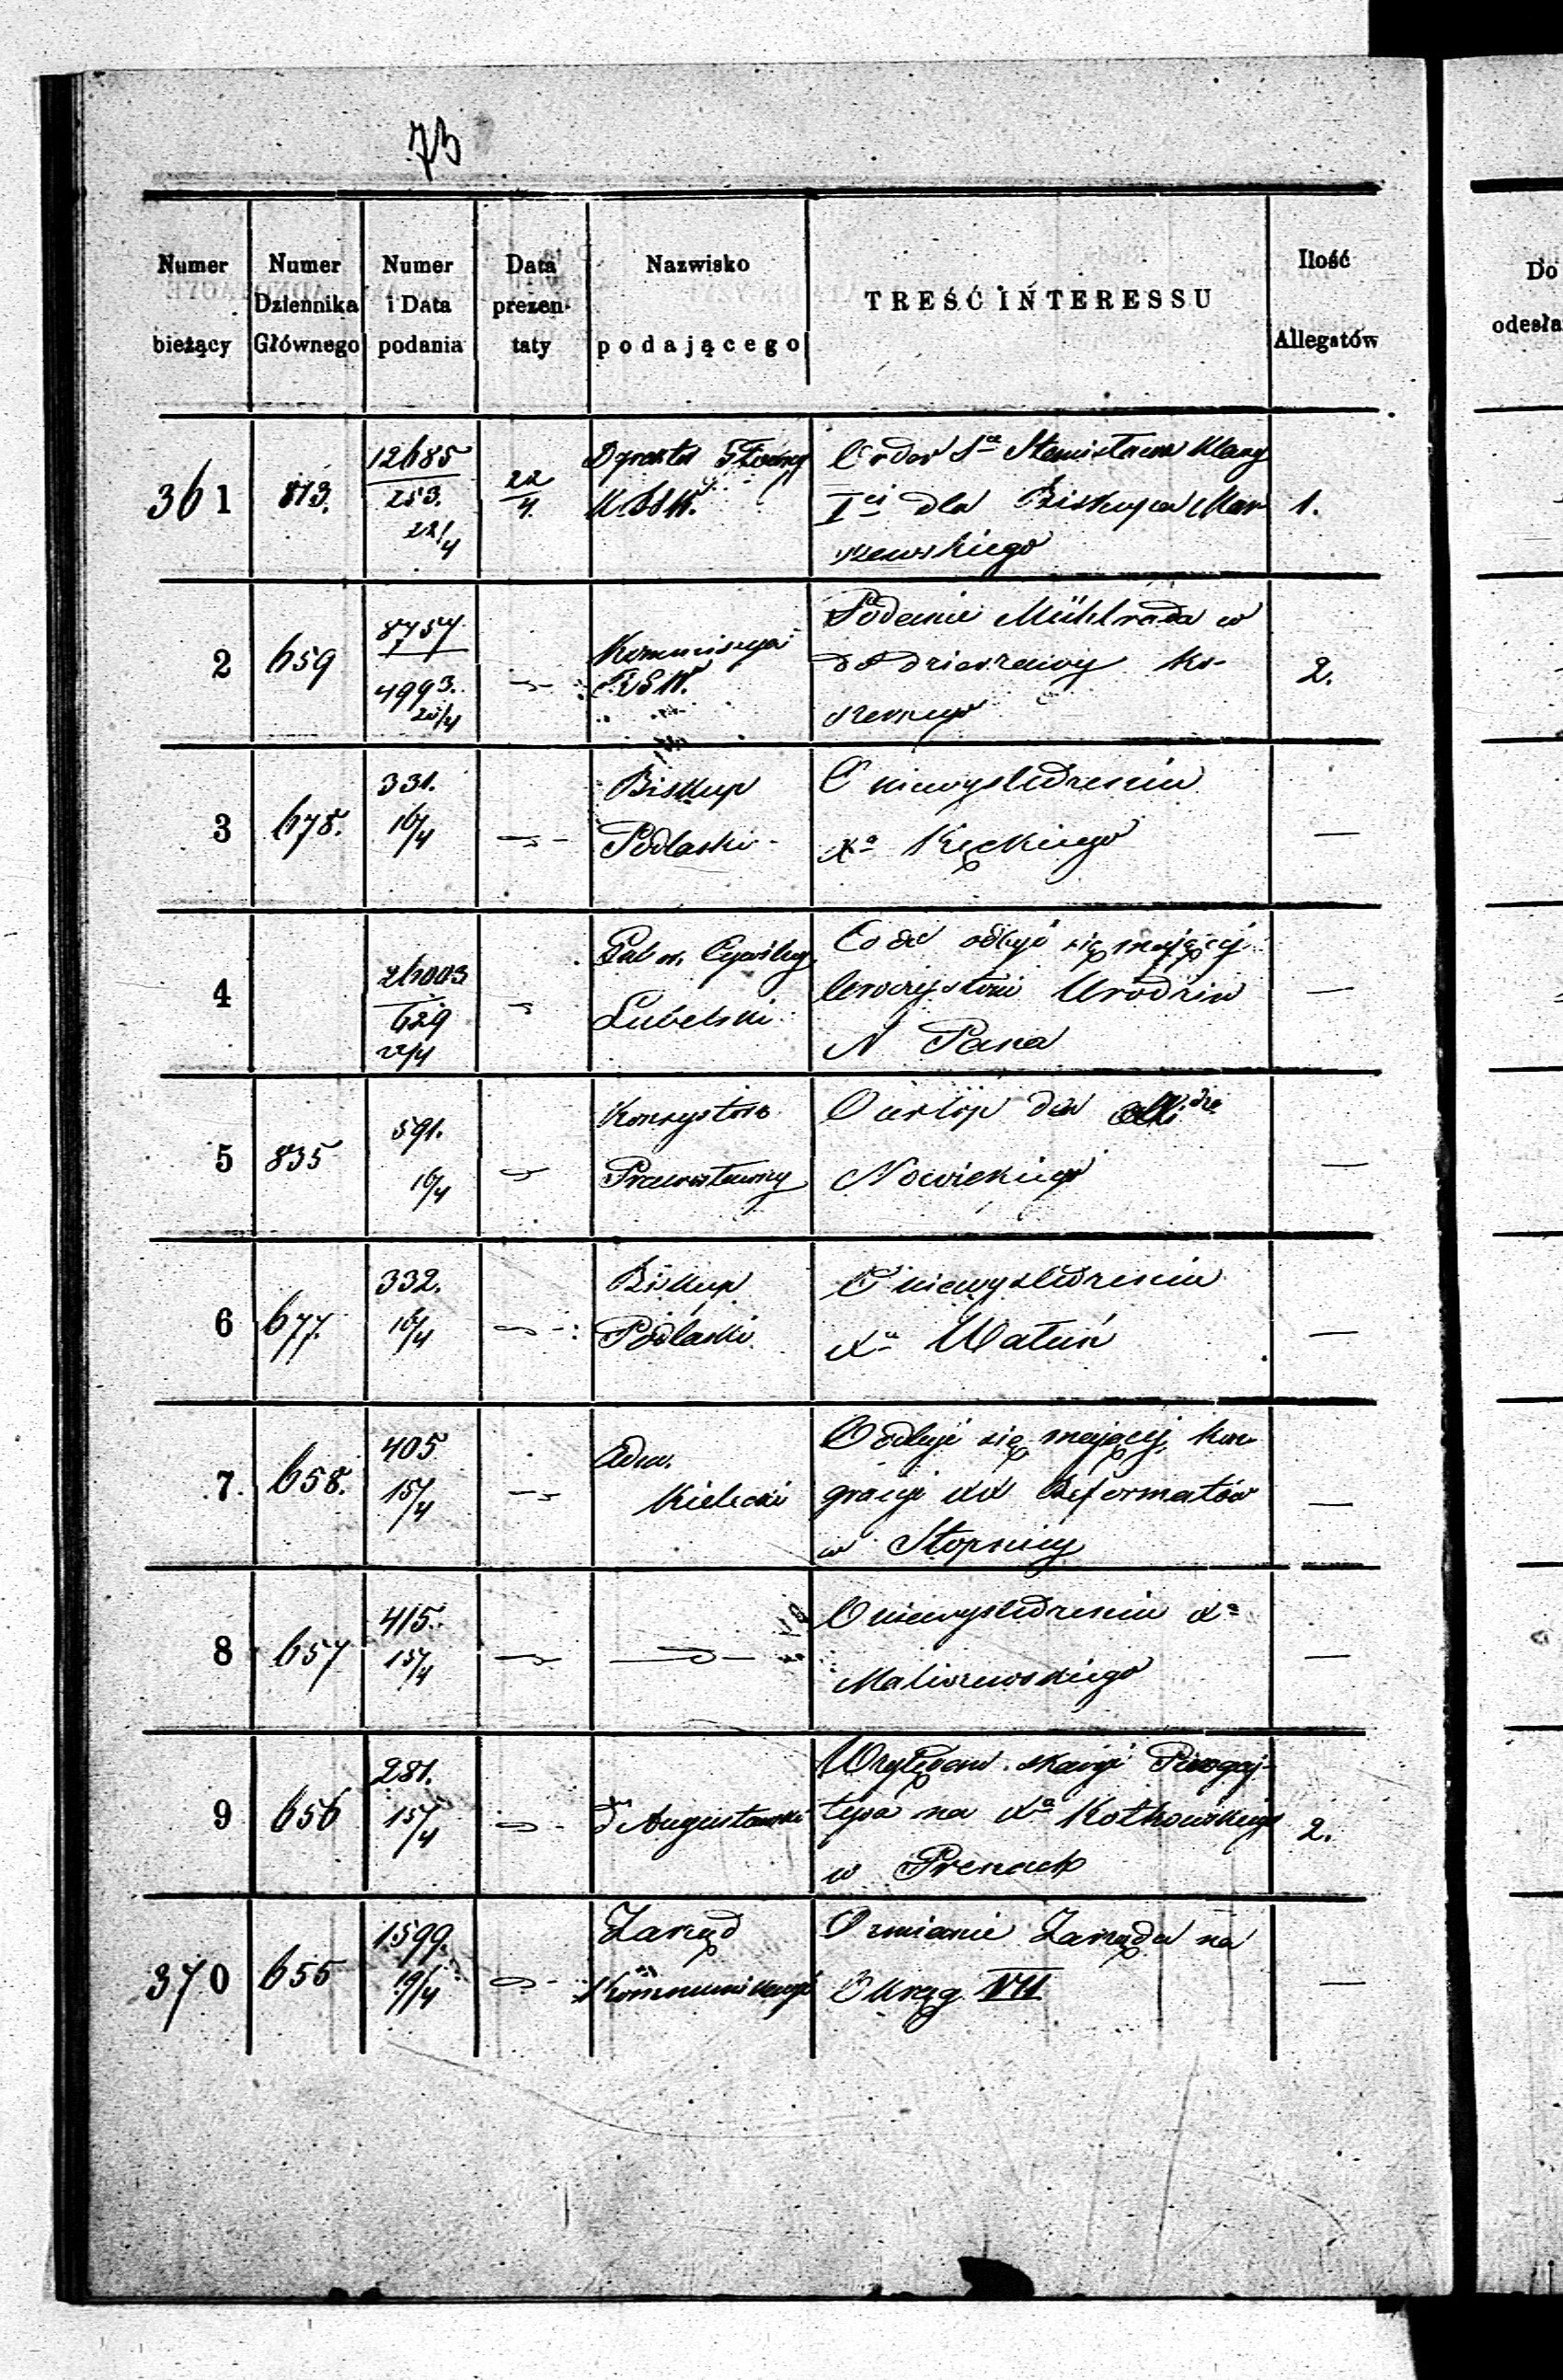 73
Numer bieżący
Numer Dziennika Głównego
Numer i Data podania
Data prezentaty
Nazwisko podającego
TREŚĆ INTERESSU
Ilość Allegatów
Do
odesła
361 813. 12685 22 Order Sa Stanisława Klasy
253. 4 Iej dla Biskupa Mar 1.
22/4 szewskiego
2 659 8757 Kommissya Podanie Mühlrada w
4993. 2.
20/4
3 678. 331. Biskup O niewyśledzeniu
16/4 Podlaski Xa Kęckiego —
4 26003 Gub. Cywilny Co do odbyć się mającej
629 Lubelski Uroczystości Urodzin —
22/4 N Pana
5 835 591. Konsystorz O urlop dla
16/4 Prawosławny Nowickiego —
6 677. 332. Biskup O niewyśledzeniu
16/4 Podlaski Xa Watuń —
7 658. 405 Adm. O odbyć się mającej kon
15/4 Kielecki gracyi XX Reformatów —
w Stopnicy
8 657 415. O niewyśledzeniu Xa
15/4 Maliszewskiego —
9 656 281. Względem skargi
15/4 Augustowski na Xa Kotkowskiego 2.
w Prenach
370 655 1599. Zarząd O zmianie Zarządu na
19/4 Kommunikacyi Okręg VII —